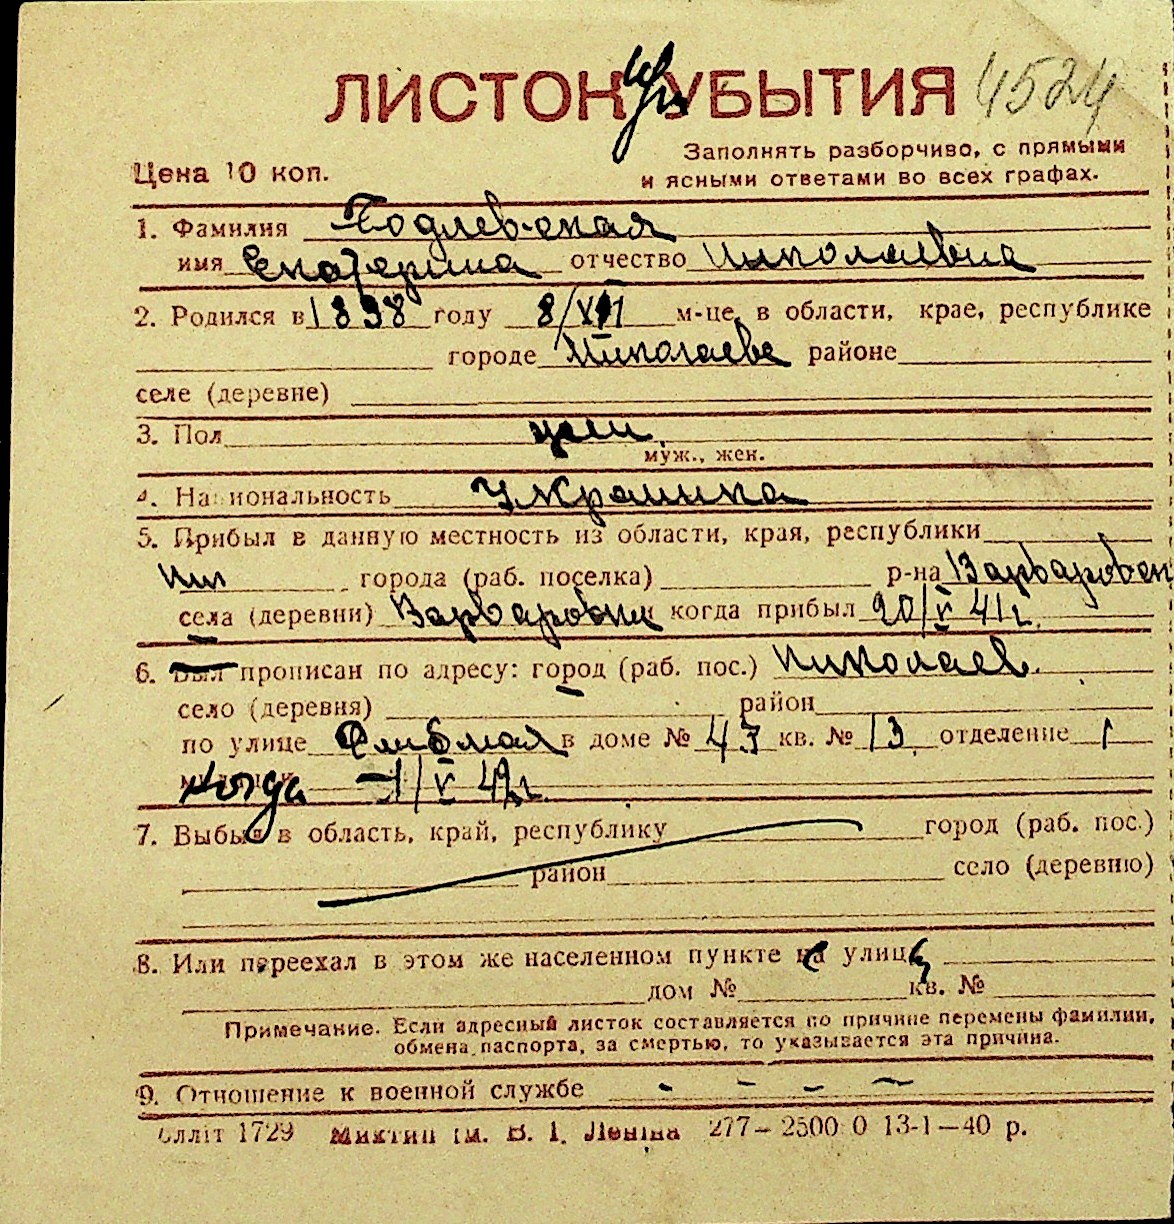 ЛИСТОК УБЫТИЯ 4524
Заполнять разборчиво, с прямыми
Цена 10 коп. и ясными ответами во всех графах.
1. Фамилия Подлевская
имя Екатерина отчество Николаевна
2. Родился в 1898 году 8/XII м-це, в области, крае, республике
городе Николаеве районе
селе (деревне)
3. Пол жен.
муж., жен.
4. Национальность Украинка
5. Прибыл в данную местность из области, края, республики
Ник города (раб. поселка) р-на Варваровск
села (деревни) Варваровки когда прибыл 20/V 41г.
6. Был прописан по адресу: город (раб. пос.) Николаев.
село (деревня) район
по улице в доме № 43 кв. № 13. отделение 1
когда 1/V 42г.
7. Выбыл в область, край, республику город (раб. пос.)
район село (деревню)
8. Или переехал в этом же населенном пункте улицу
дом № кв. №
Примечание. Если адресный листок составляется по причине перемены фамилии,
обмена паспорта, за смертью, то указывается эта причина.
9. Отношение к военной службе - - - -
1729 Миктип ім. В. І. Леніна 277—2500 0 13-1—40 р.